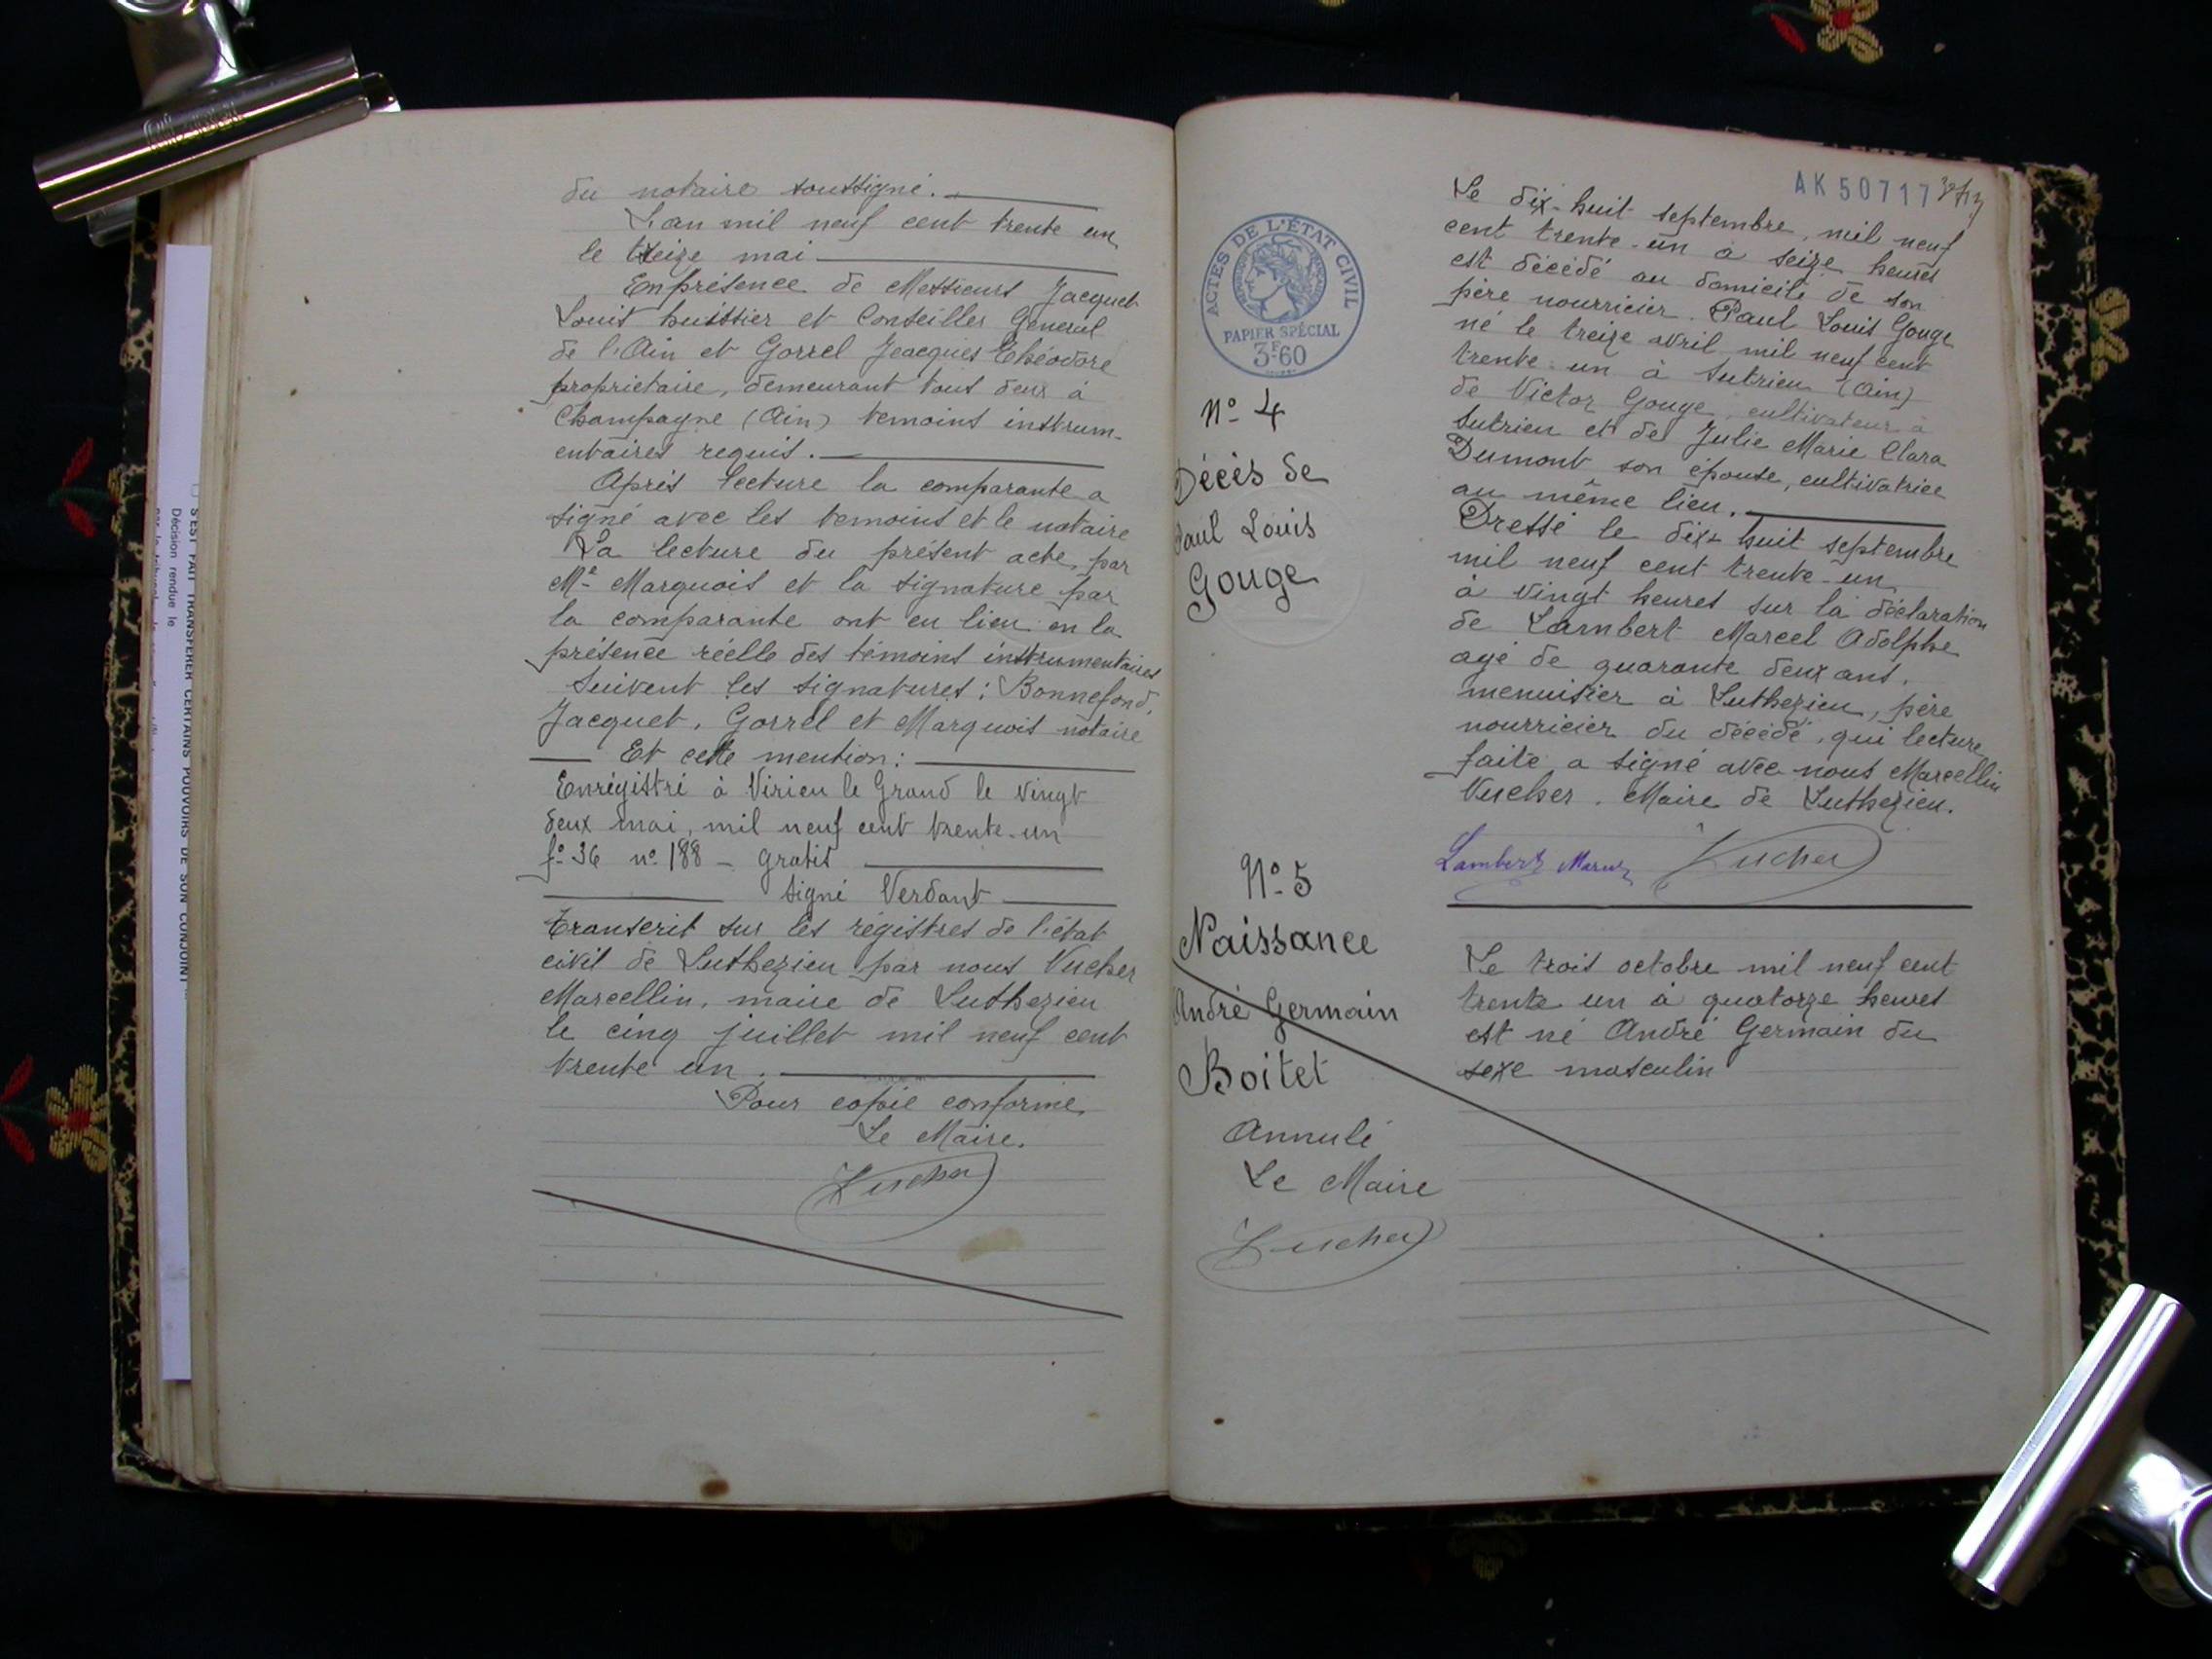 du notaire soussigné.
L'an mil neuf cent trente un
le treize mai
En présence de Messieurs Jacquet
Louis huissier et Conseiller Général
de l'Ain et Gorrel Jeacques Théodore
propriétaire, demeurant tous deux à
Champagne (Ain) temoins instrum-
entaires requis.
Après lecture la comparante a
signé avec les temoins et le notaire
La lecture du présent acte, par
Me Marquois et la signature par
la comparante ont eu lieu en la
présence réelle des témoins instrumentaires
Suivent les signatures : Bonnefond,
Jacquet, Gorrel et Marquois notaire
Et cette mention :
Enrégistré à Virieu le Grand le vingt
deux mai, mil neuf cent trente-un
fo 36 no 188 - gratis
signé Verdant
Transcrit sur les régistres de l'état
civil de Luthezieu par nous Vucher
Marcellin, maire de Luthezieu
le cinq juillet mil neuf cent
trente un.
Pour copie conforme
Le Maire.
Vucher
S'EST FAIT TRANSFERER CERTAINS POUVOIRS DE SON CONJOINT
Décision rendue le
ACTES DE L'ÉTAT CIVIL
PAPIER SPÉCIAL
3F60
No 4
Décès de
Paul Louis
Gouge
AK 50717
Le dix-huit septembre, mil neuf
cent trente-un à seize heures
est décédé au domicile de son
père nourricier. Paul Louis Gouge
né le treize avril mil neuf cent
trente-un à Sutrieu (Ain)
de Victor Gouge, cultivateur à
Sutrieu et de Julie Marie Clara
Dumont son épouse, cultivatrice
au même lieu.
Dressé le dix-huit septembre
mil neuf cent trente-un
à vingt heures sur la déclaration
de Lambert Marcel Adolphe
agé de quarante deux ans,
menuisier à Luthezieu, père
nourricier du décédé, qui lecture
faite a signé avec nous Marcellin
Vucher. Maire de Luthezieu.
Lambert Marcel Vucher
No 5
Naissance
André Germain
Boitet
Annulé
Le Maire
Vucher
Le trois octobre mil neuf cent
trente un à quatorze heures
est né André Germain du
sexe masculin